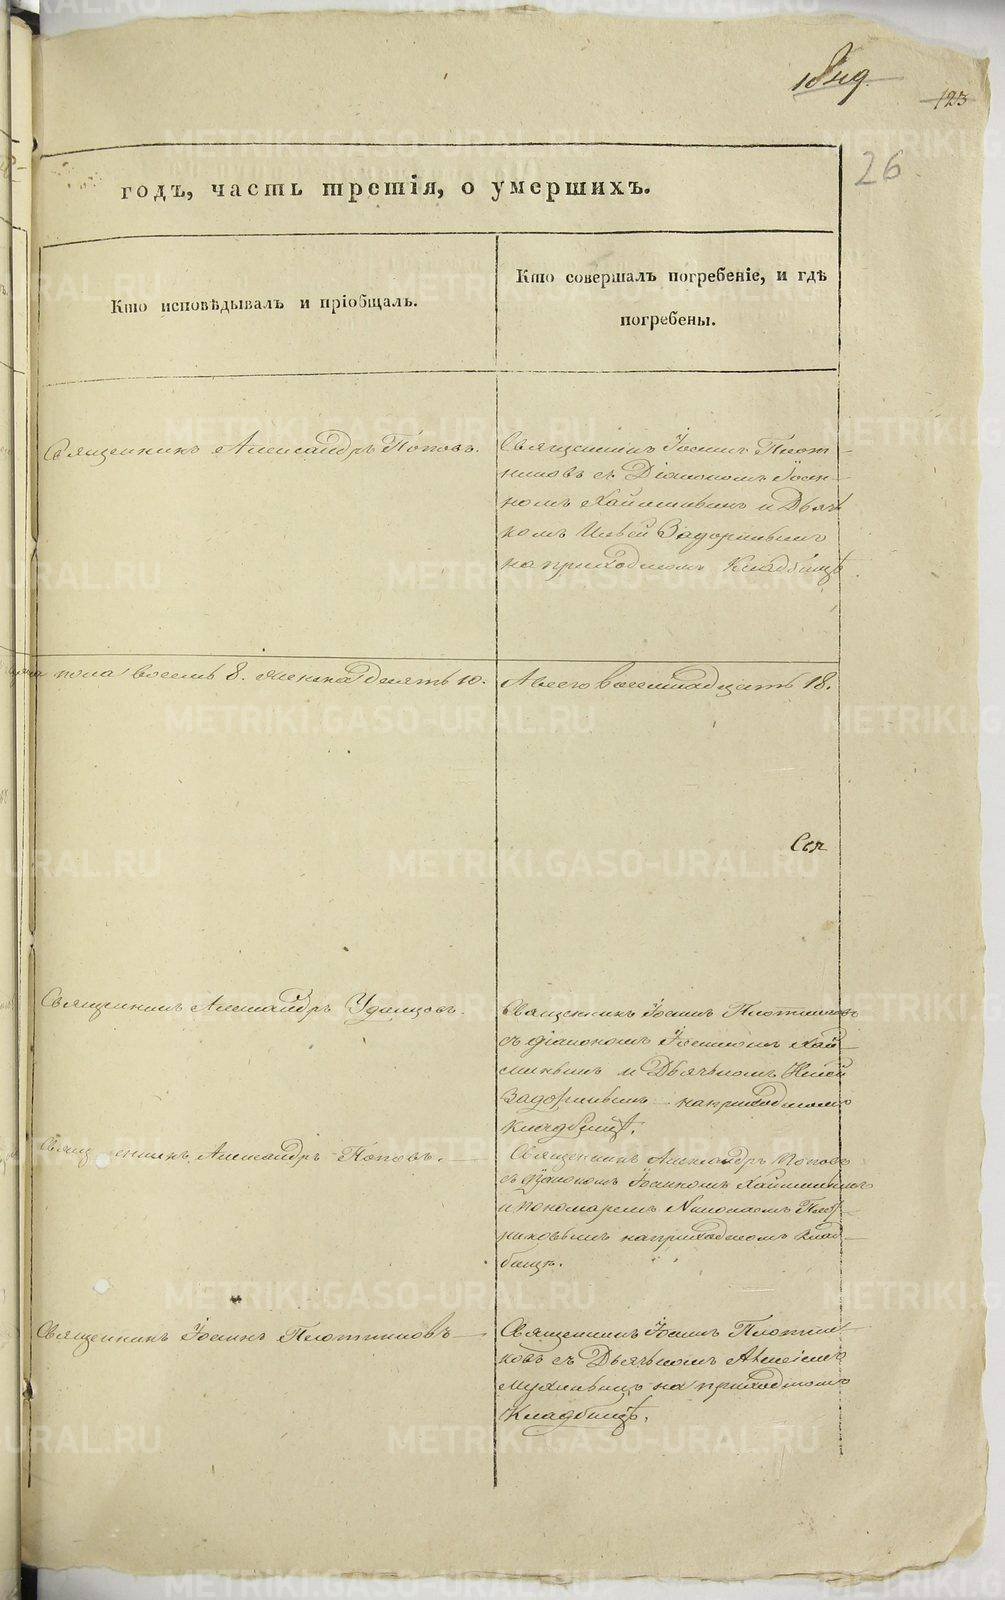 123
26
годъ, часть третія, о умершихъ.
Кто исповѣдывалъ и пріобщалъ.
Кто совершалъ погребеніе, и гдѣ
погребены.
Священникъ Александръ Поповъ.
Священникъ Іоаннъ Плот-
никовъ съ Діакономъ Іоан-
номъ и Дьяч
комъ Ильей Задоринымъ
на приходскомъ Кладбищѣ
пола восемь 8. женска десять 10.
А всего восемнадцать 18.
Священникъ Александръ Удинцовъ.
Священникъ Іоаннъ Плотниковъ
съ діакономъ Іоанномъ Хай-
минымъ и Дьячкомъ Ильей
Задоринымъ на приходскомъ
кладбищѣ.
Священникъ Александръ Поповъ.
Священникъ Александръ Поповъ
съ діакономъ Іоанномъ
и пономаремъ Николаемъ Плот-
никовымъ на приходскомъ клад-
бищѣ.
Священникъ Іоаннъ Плотниковъ
Священникъ Іоаннъ Плотни
ковъ съ Дьячкомъ Алексіемъ
на приходскомъ
Кладбищѣ.
METRIKI.GASO-URAL.RU